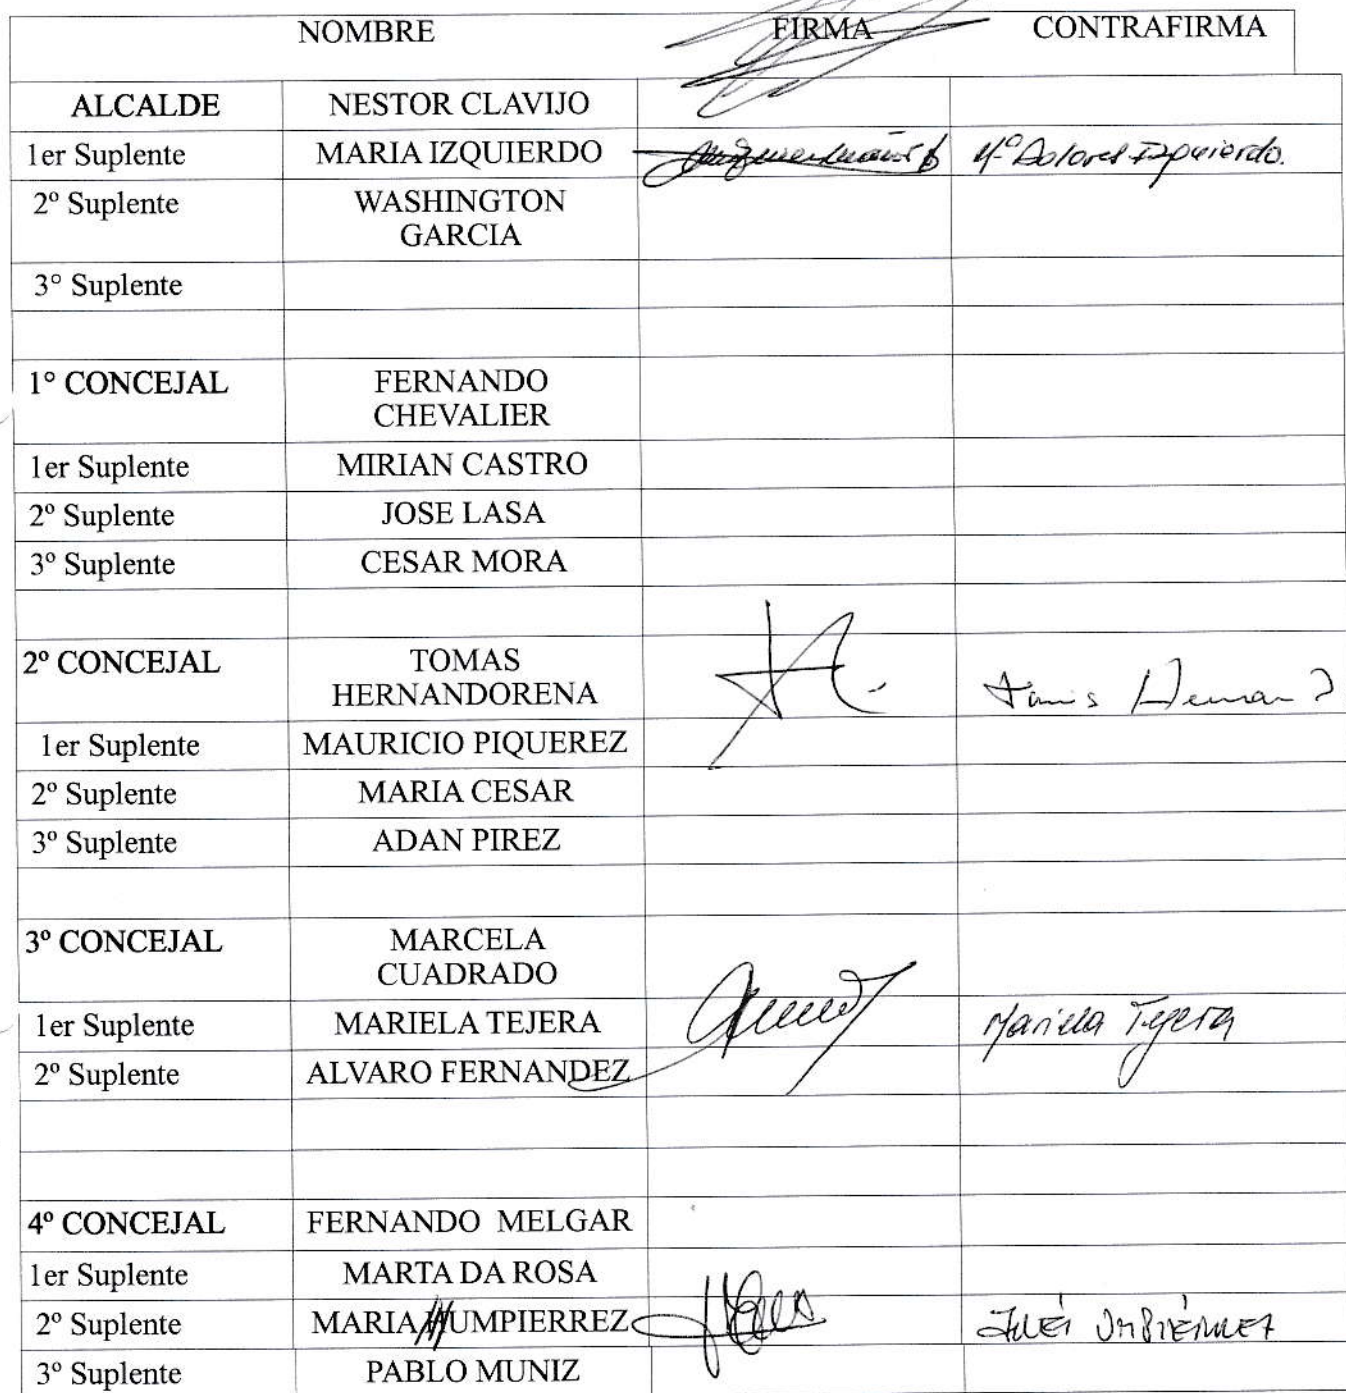 NOMBRE FIRMA CONTRAFIRMA
ALCALDE NESTOR CLAVIJO
1er Suplente MARIA IZQUIERDO Mª Dolores Izquierdo.
2º Suplente WASHINGTON
GARCIA
3° Suplente
1° CONCEJAL FERNANDO
CHEVALIER
1er Suplente MIRIAN CASTRO
2º Suplente JOSE LASA
3º Suplente CESAR MORA
2º CONCEJAL TOMAS
HERNANDORENA
1er Suplente MAURICIO PIQUEREZ
2º Suplente MARIA CESAR
3º Suplente ADAN PIREZ
3º CONCEJAL MARCELA
CUADRADO
1er Suplente MARIELA TEJERA Mariela Tejera
2º Suplente ALVARO FERNANDEZ
4º CONCEJAL FERNANDO MELGAR
1er Suplente MARTA DA ROSA
2º Suplente MARIA UMPIERREZ
3º Suplente PABLO MUNIZ